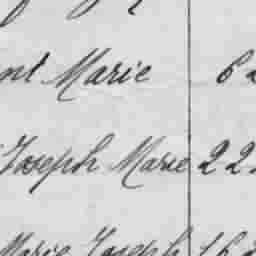 Marie 6
Joseph Marie 22
Marie Joseph 16